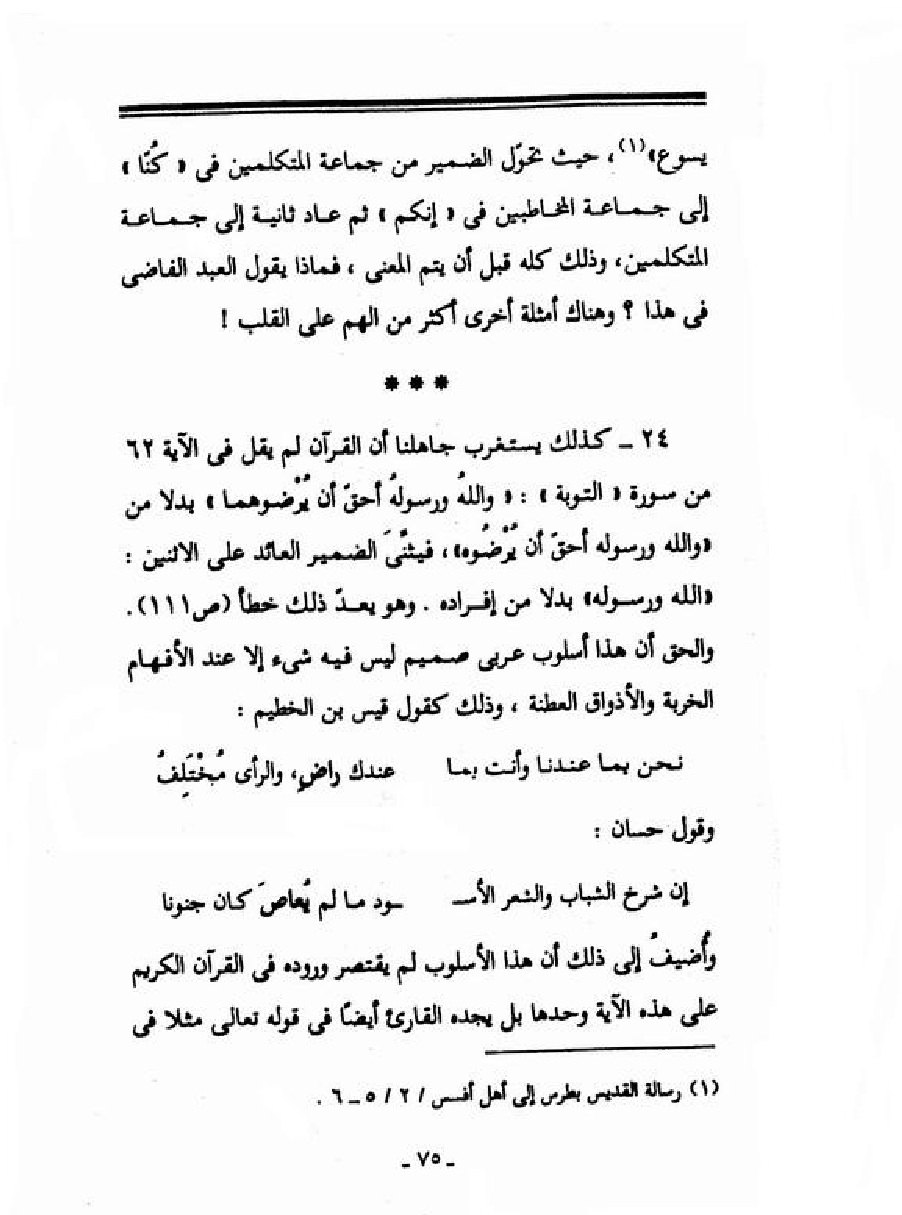 يسوع»(١)، حيث تحوّل الضمير من جماعة المتكلمين فى « كُنّا »
إلى جـمـاعـة المخـاطبين فى « إنكم » ثم عـاد ثانيـة إلى جـمـاعـة
المتكلمين، وذلك كله قبل أن يتم المعنى ، فماذا يقول العبد الفاضى
فى هذا ؟ وهناك أمثلة أخرى أكثر من الهم على القلب !
* * *
٢٤ ـ كـذلك يستـغرب جـاهلنا أن القـرآن لم يقل فى الآية ٦٢
من سـورة « التـوبة » : « واللهُ ورسـولهُ أحقّ أن يُرْضـوهمـا » بدلا من
«والله ورسوله أحقّ أن يُرْضُوه» ، فيثنَّىَ الضمير العائد على الاثنين :
«الله ورسـوله» بدلا من إفـراده . وهو يعـدّ ذلك خطأ (ص١١١).
والحق أن هذا أسلوب عـربى صـميم ليس فيـه شىء إلا عند الأفـهـام
الخربة والأذواق العطنة ، وذلك كقول قيس بن الخطيم :
نـحن بمـا عنـدنـا وأنت بمـا عندك راضٍ، والرأى مُخْتَلِفُ
وقول حسان :
إن شرخ الشباب والشعر الأسـ ـود مـا لم يُعاصَ كـان جنونا
وأُضيفُ إلى ذلك أن هذا الأسلوب لم يقتصر وروده فى القرآن الكريم
على هذه الآية وحدها بل يجده القارئ أيضًا فى قوله تعالى مثلا فى
(١) رسالة القديس بطرس إلى أهل أفسس / ٢ / ٥ ـ ٦ .
ـ ٧٥ ـ